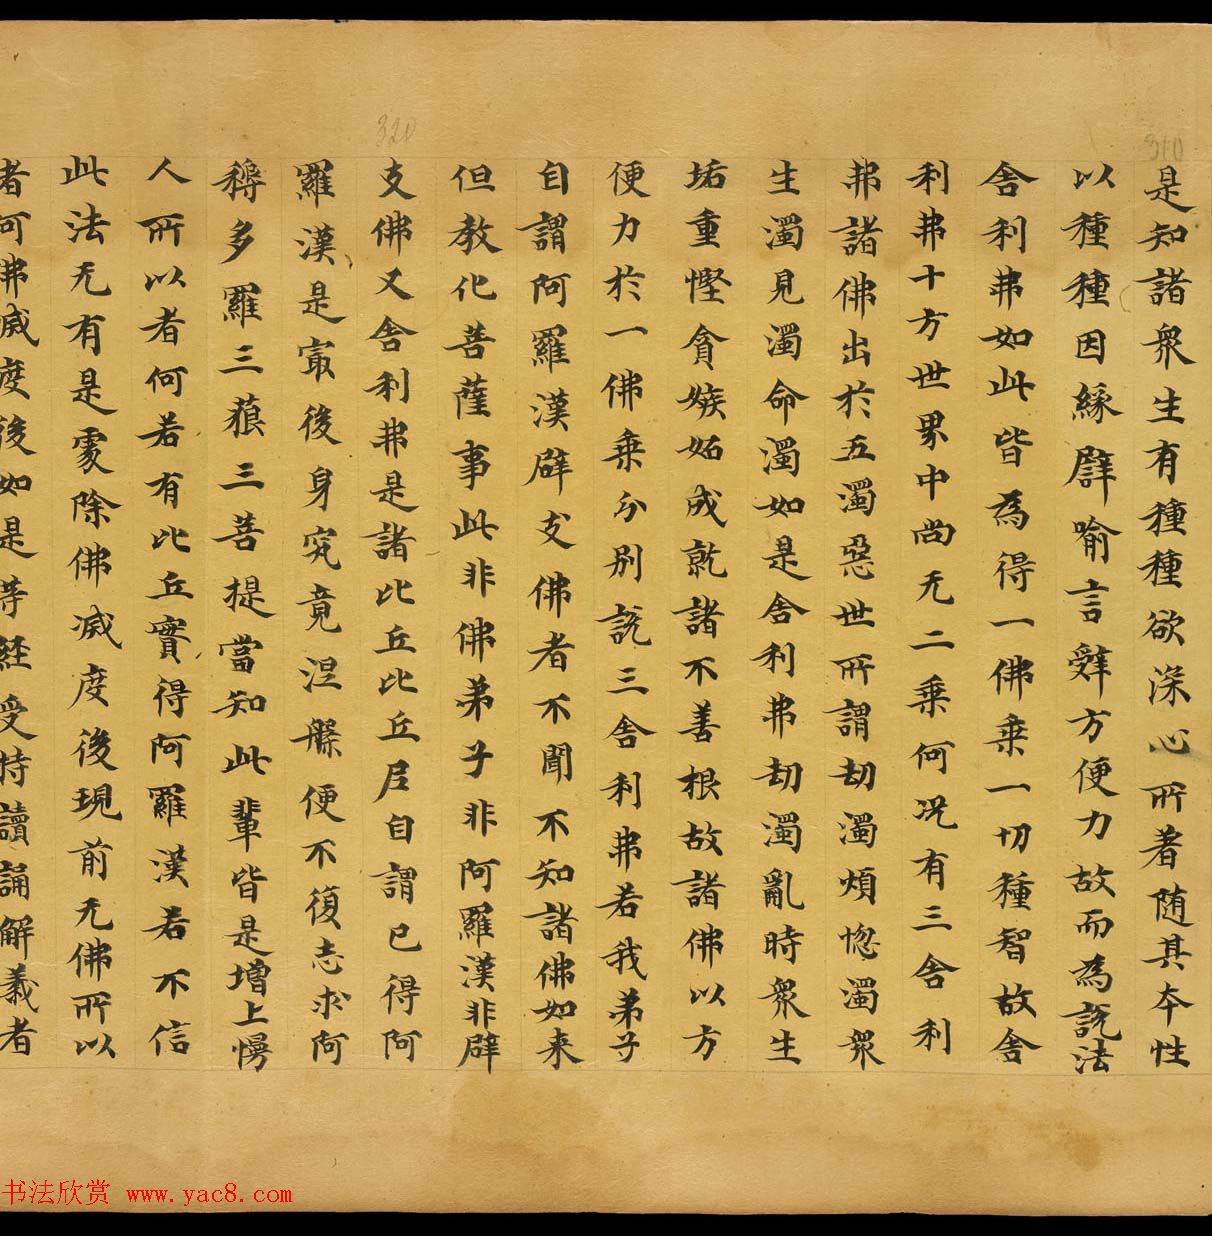 310
320
是知諸衆生有種種欲深心所著随其本性
以種種因緣譬喻言辤方便力故而為說法
舍利弗如此皆為得一佛乗一切種智故舍
利弗十方世界中尚无二乗何况有三舍利
弗諸佛出於五濁惡世所謂劫濁煩惚濁衆
生濁見濁命濁如是舍利弗劫濁亂時衆生
垢重慳貪嫉妬成就諸不善根故諸佛以方
便力於一佛乗分別說三舍利弗若我弟子
自謂阿羅漢辟支佛者不聞不知諸佛如来
但教化菩薩事此非佛弟子非阿羅漢非辟
支佛又舍利弗是諸比丘比丘尼自謂已得阿
羅漢是冣後身究竟涅槃便不復志求阿
耨多羅三藐三菩提當知此輩皆是增上慢
人所以者何若有比丘實得阿羅漢若不信
此法无有是處除佛滅度後現前无佛所以
者何佛滅度後如是等経受持讀誦解義者
书法欣赏 www.yac8.com